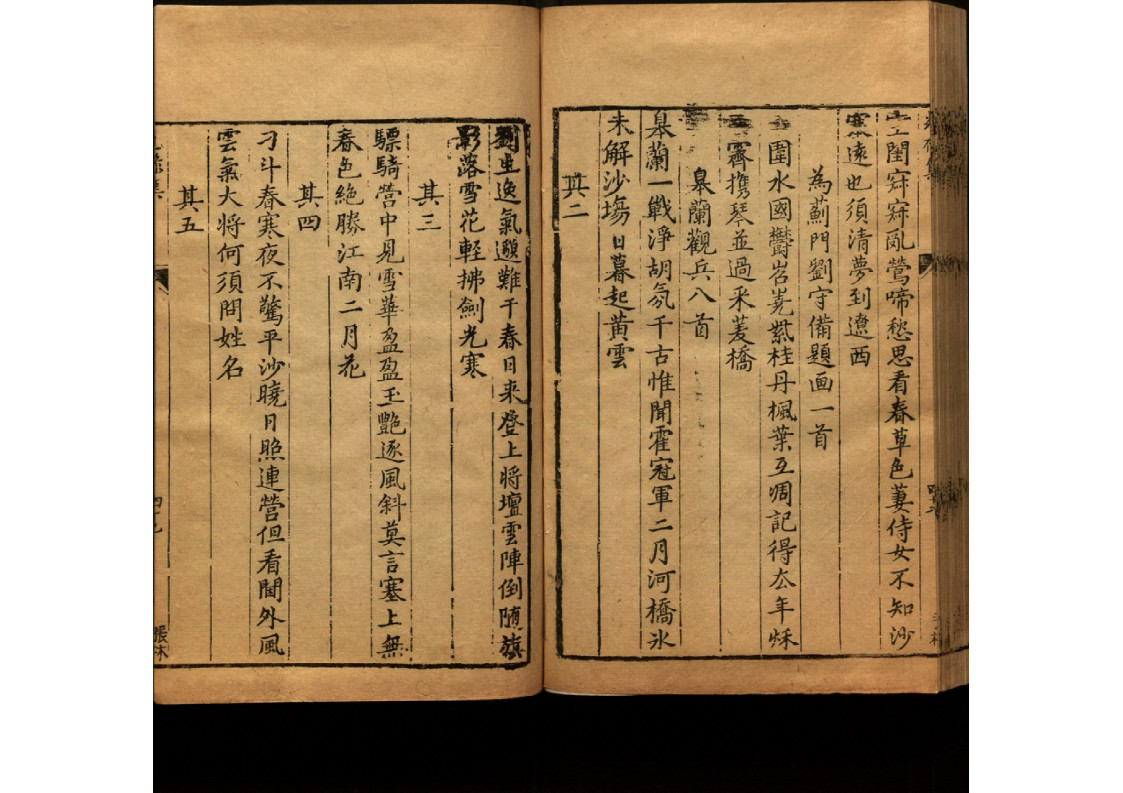 閨寂寂亂鶯啼愁思看春草色萋侍女不知沙
塞遠也須清夢到遼西
為薊門劉守備題画一首
圍水國欝岧嶤紫桂丹楓葉互凋記得去年秌
霽携琴並過采菱橋
皋蘭觀兵八首
皋蘭一戰淨胡氛千古惟聞霍冠軍二月河橋氷
未解沙塲日暮起黃雲
其二
劉生逸氣邈難干春日来登上將壇雲陣倒随旗
影落雪花輕拂劍光寒
其三
驃騎營中見雪華盈盈玉艷逐風斜莫言塞上無
春色絶勝江南二月花
其四
刁斗春寒夜不驚平沙曉日照連營但看閫外風
雲氣大將何須問姓名
其五
張本